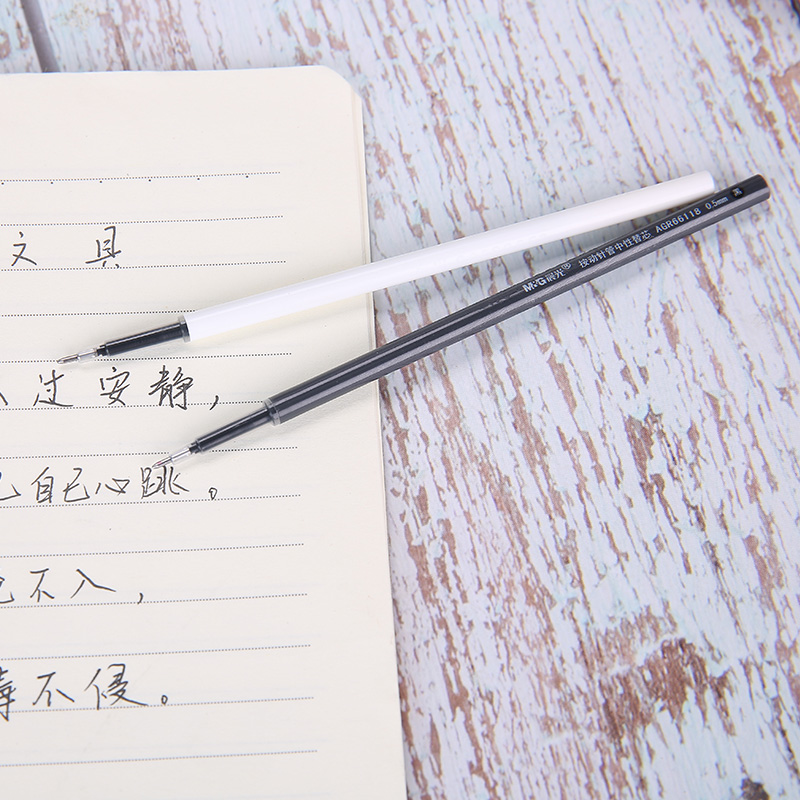 文具
过安静，
己自己心跳。
不入，
不侵。
M&G晨光® 按动针管中性替芯 AGR66118 0.5mm 黑